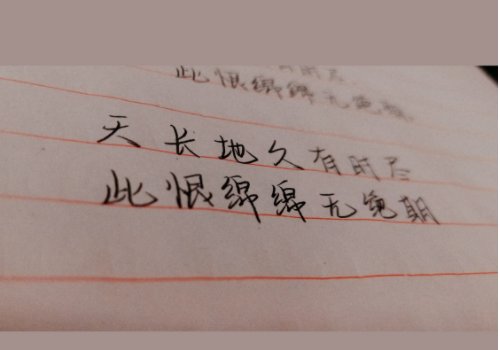 此恨绵绵无绝期
天长地久有时尽
此恨绵绵无绝期